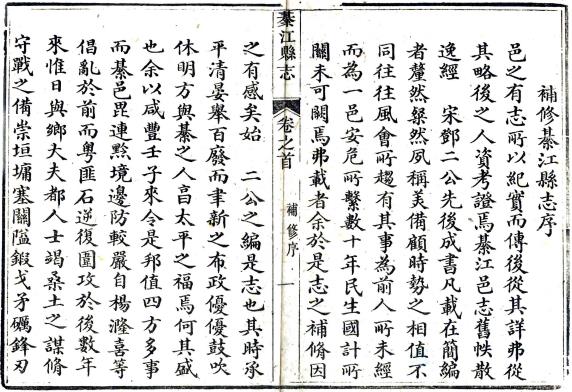 補修綦江縣志序
邑之有志所以紀實而傳後從其詳弗從
其略後之人資考證焉綦江邑志舊帙散
逸經 宋鄧二公先後成書凡載在簡編
者釐然粲然夙稱美備顧時勢之相值不
同往往風會所趨有其事為前人所未經
而為一邑安危所繫數十年民生國計所
關未可闕焉弗載者余於是志之補脩因
綦江縣志
卷之首
補修序
一
之有感矣始 二公之編是志也其時承
平清晏舉百廢而聿新之布政優優鼓吹
休明方與綦之人啚太平之福焉何其盛
也余以咸豐壬子來令是邦值四方多事
而綦邑毘連黔境邊防較嚴自楊漋喜等
倡亂於前而粵匪石逆復圍攻於後數年
來惟日與鄉大夫都人士竭桑土之謀脩
守戰之備崇垣墉塞關隘鍜戈矛礪鋒刃